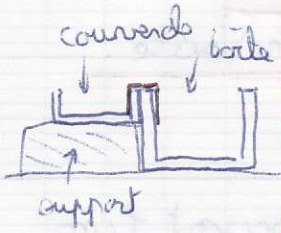 couvercle boîte
support